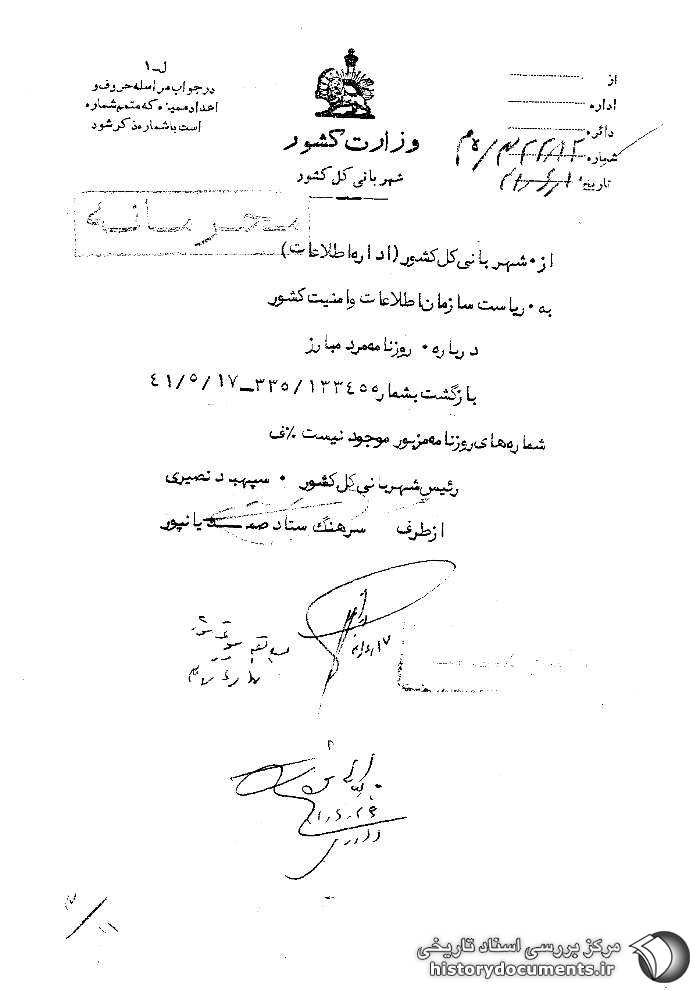 ل-۱
در جواب مراسله حروف و
اعداد ممیزه که متمم شماره
است با شماره ذکر شود
وزارت کشور
شهربانی کل کشور
از
اداره
دائره
شماره
تاریخ
محرمانه
از • شهربانی کل کشور (اداره اطلاعات)
به • ریاست سازمان اطلاعات و امنیت کشور
درباره • روزنامه مرد مبارز
بازگشت بشماره ۳۳۵/۱۳۳٤٥٥ــ ٤۱/٥/۱۷
شماره های روزنامه مزبور موجود نیست %ف
رئیس شهربانی کل کشور • سپهبد نصیری
از طرف سرهنگ ستاد صمدیانپور
مرکز بررسی اسناد تاریخی
historydocuments.ir